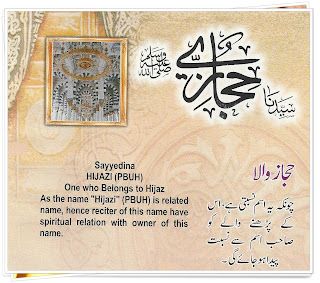 سیدنا حجازیؐ
صلی اللہ علیہ وسلم
Sayyedina
HIJAZI (PBUH)
One who Belongs to Hijaz
As the name "Hijazi" (PBUH) is related
name, hence reciter of this name have
spiritual relation with owner of this
name.
حجاز والا
چونکہ یہ اسم نسبتی ہے، اس
کے پڑھنے والے کو
صاحب اسم سے نسبت
پیدا ہو جائے گی۔